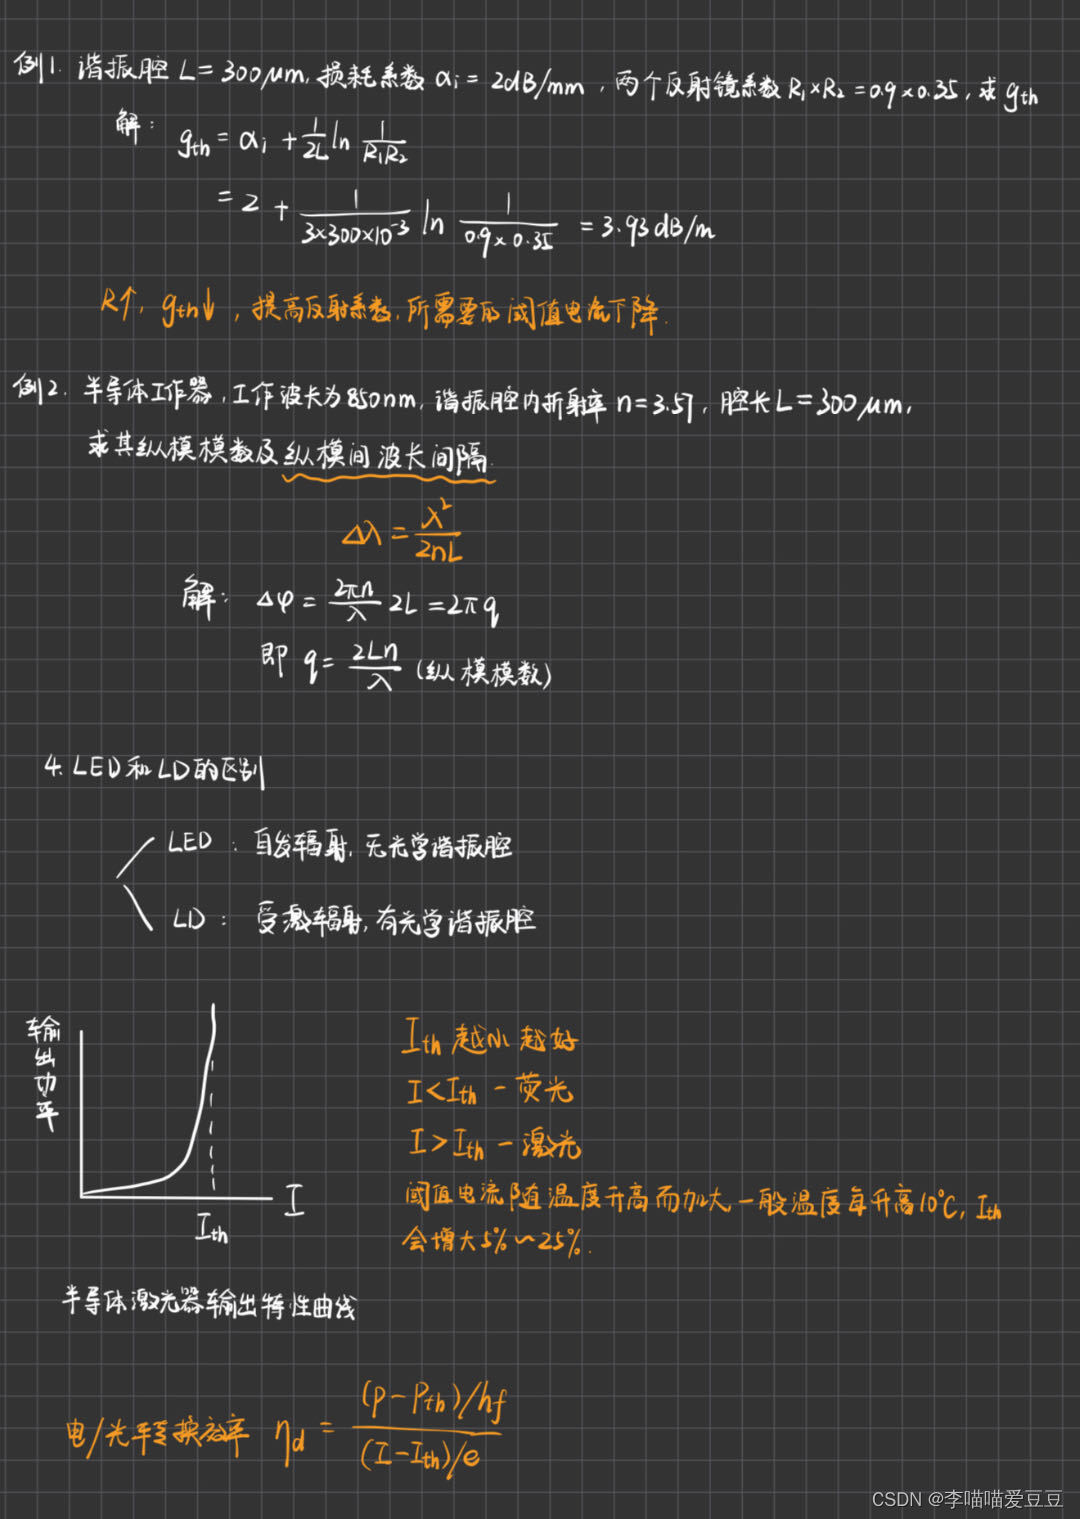 例1. 谐振腔 L = 300μm, 损耗系数 αi = 2dB/mm, 两个反射镜系数 R₁×R₂ = 0.9×0.35, 求 gth
解: gth = αi + 1/2L ln 1/R₁R₂
= 2 + 1/3×300×10⁻³ ln 1/0.9×0.35 = 3.93dB/m
R↑, gth↓, 提高反射系数, 所需要的阈值电流下降.
例2. 半导体工作器, 工作波长为850nm, 谐振腔内折射率 n=3.57, 腔长L=300μm,
求其纵模模数及纵模间波长间隔.
Δλ = λ²/2nL
解: Δφ = 2πn/λ 2L = 2πq
即 q = 2Ln/λ (纵模模数)
4. LED和LD的区别
LED: 自发辐射, 无光学谐振腔
LD: 受激辐射, 有光学谐振腔
输出功率
I
Ith
Ith 越小越好
I<Ith - 荧光
I>Ith - 激光
阈值电流随温度升高而加大, 一般温度每升高10℃, Ith
会增大5%~25%.
半导体激光器输出特性曲线
电/光转换效率 ηd = (P-Pth)/hf / (I-Ith)/e
CSDN @李喵喵爱豆豆